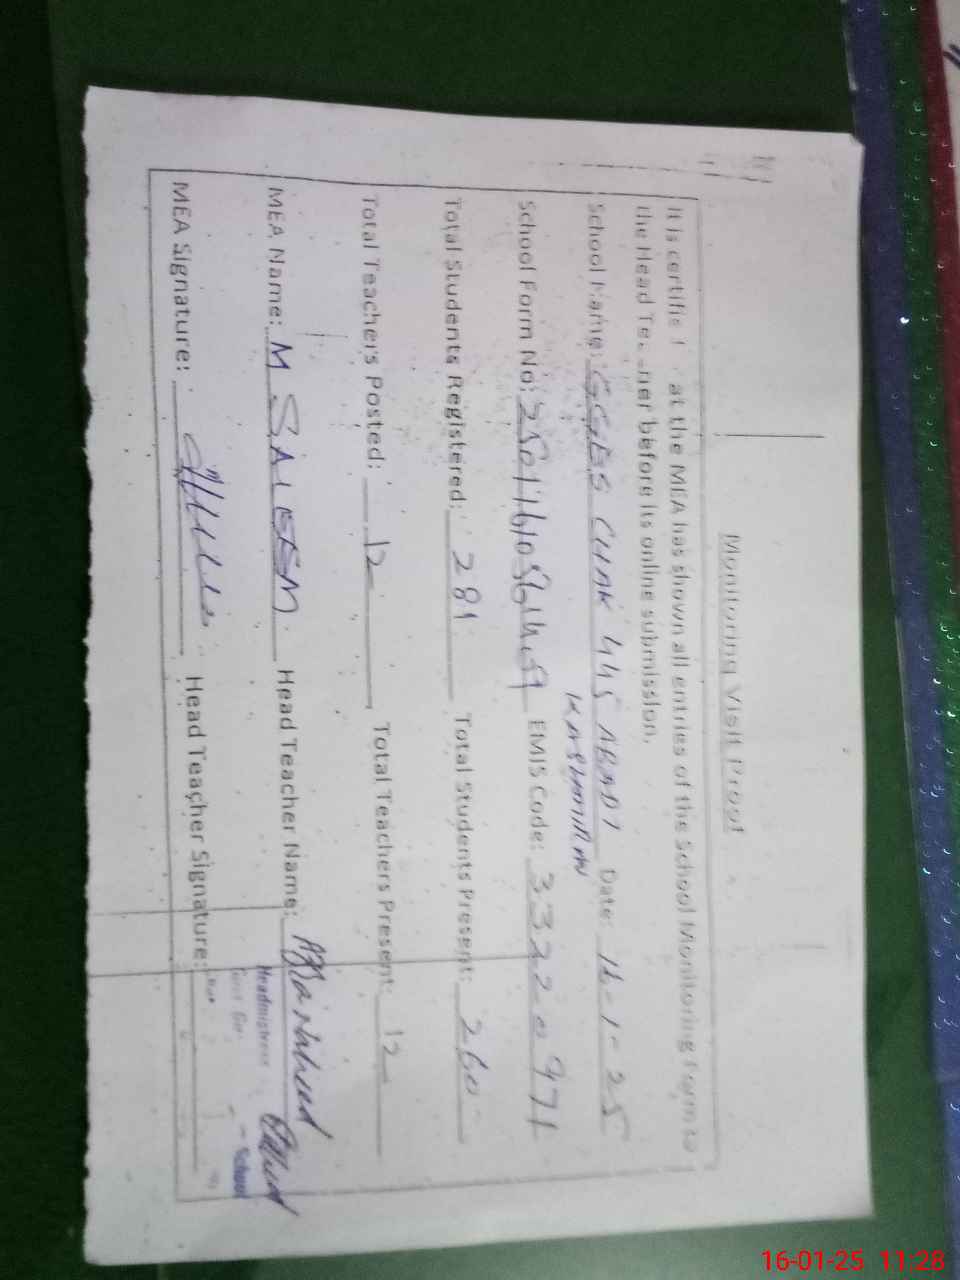 Monitoring Visit Proof
It is certified that the MEA has shown all entries of the School Monitoring Form to
the Head Teacher before its online submission.
School Name: GGES CHAK 445 ABADI Date: 16-1-25
School Form No: EMIS Code: 33220971
Total Students Registered: 281 Total Students Present: 260
Total Teachers Posted: 12 Total Teachers Present: 12
MEA Name: M SALEEM Head Teacher Name:
Headmistress
MEA Signature: Head Teacher Signature:
School
16-01-25 11:28